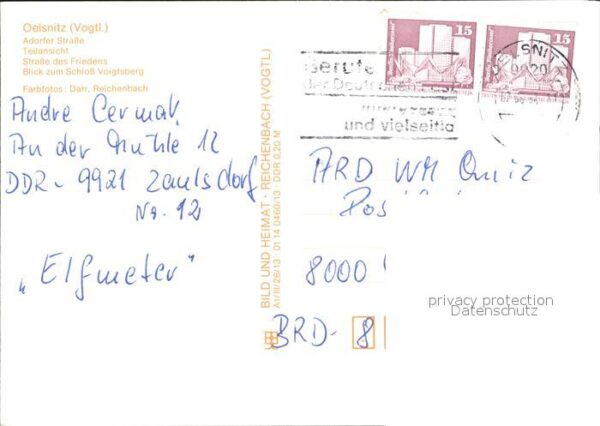 Oelsnitz (Vogtl.)
Adorfer Straße
Teilansicht
Straße des Friedens
Blick zum Schloß Voigtsberg
Farbfotos: Darr, Reichenbach
Andre Cermak
An der Mühle 12
DDR - 9921 Zaulsdorf
Nr. 12
„Elfmeter"
BILD UND HEIMAT · REICHENBACH (VOGTL)
A1/III/26/13 · 01 14 0460/13 · DDR 0,20 M
15
15
Berufe
der Deutschen Post
interessant
und vielseitig
OELSNITZ
9920
ARD WM Quiz
Pos
8000
BRD- 8
privacy protection
Datenschutz